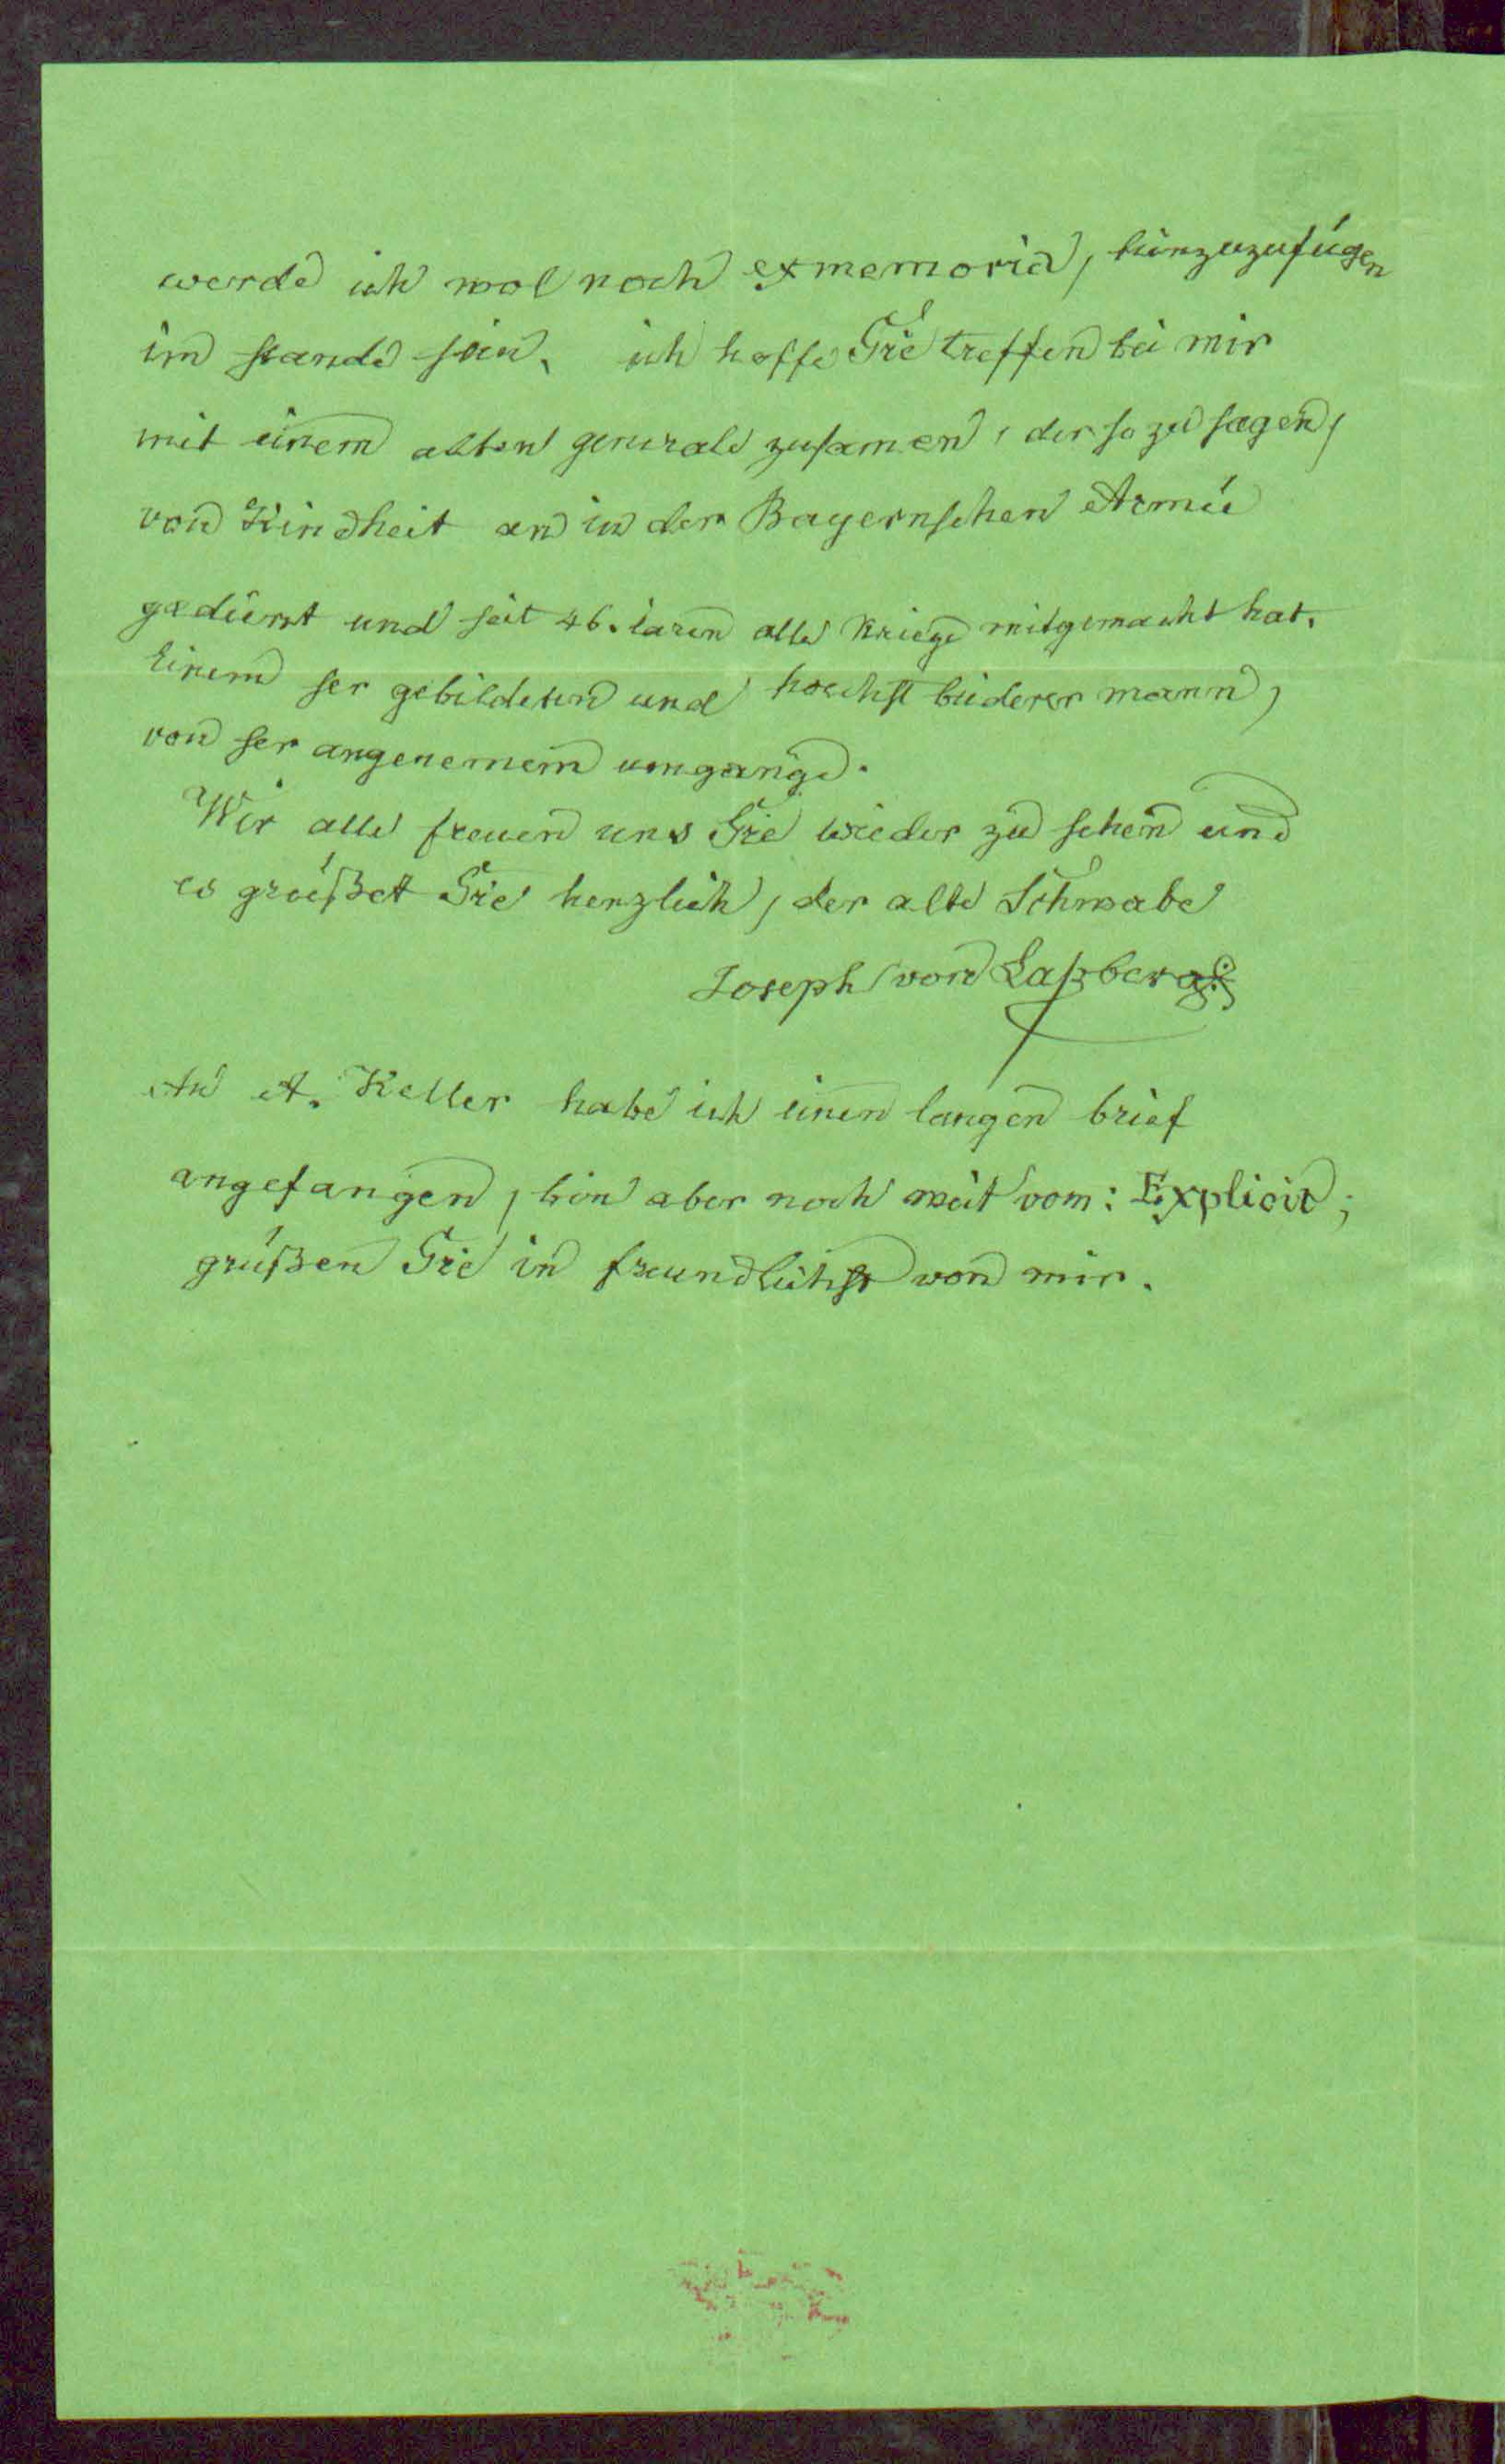 werde ich wol noch ex memoria, hinzuzufügen
im stande sein. ich hoffe Sie treffen bei mir
mit einem alten generale zusamen, der so zu sagen,
von Kindheit an in der Bayernschen Armée
gedient und seit 46. iaren alle kriege mitgemacht hat.
Einem ser gebildeten und hoechst mann,
von ser angenemem umgange.
Wir alle freuen uns Sie wieder zu sehen und
es grüßet Sie herzlich, der alte Schwabe
Joseph von Laßberg.
An A. Keller habe ich einen langen brief
angefangen, bin aber noch weit vom: Explicit;
grüßen Sie in freundlichst von mir.